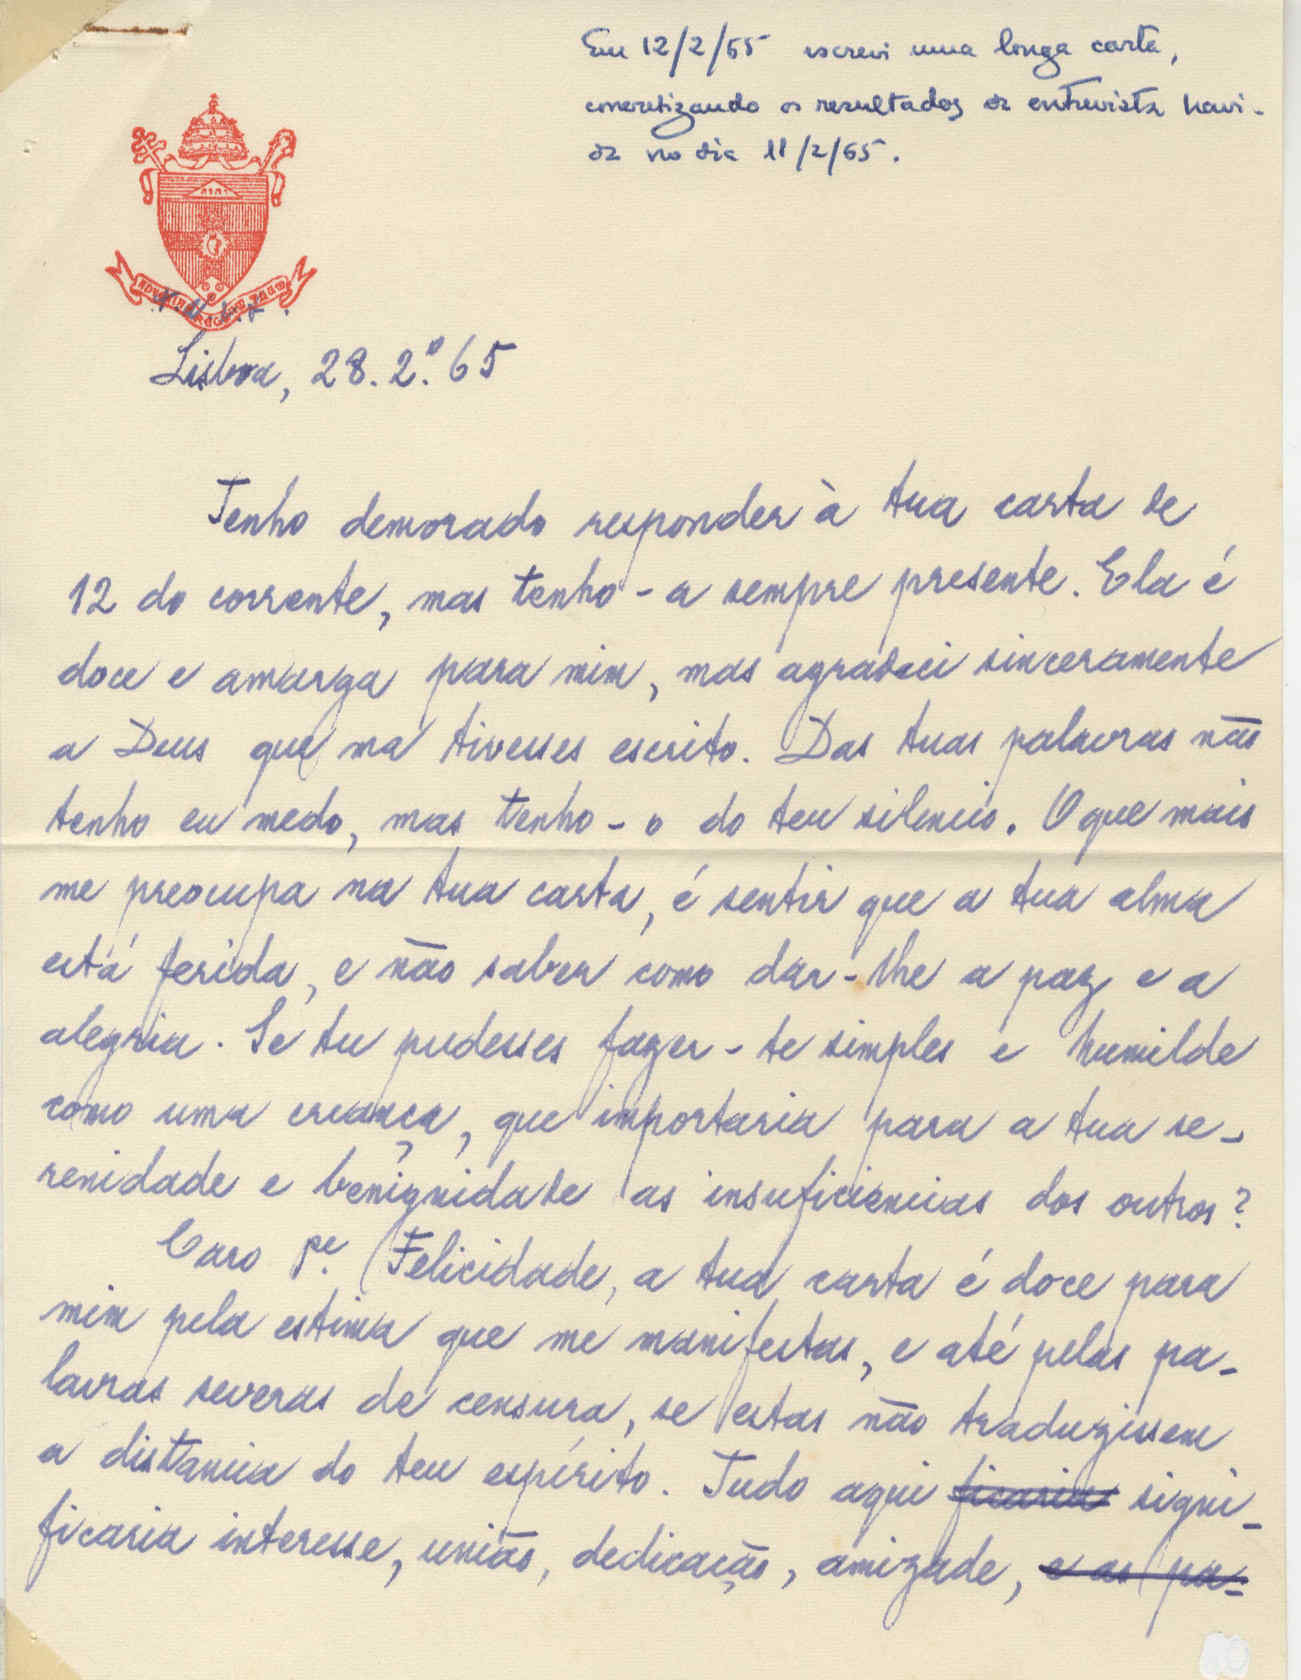 Em 12/2/65 escrevi uma longa carta,
concretizando os resultados da entrevista havi-
da no dia 11/2/65.
Lisboa, 28.2.º65
Tenho demorado responder à tua carta de
12 do corrente, mas tenho-a sempre presente. Ela é
doce e amarga para mim, mas agradeci sinceramente
a Deus que ma tivesses escrito. Das tuas palavras não
tenho eu medo, mas tenho-o do teu silencio. O que mais
me preocupa na tua carta, é sentir que a tua alma
está ferida, e não saber como dar-lhe a paz e a
alegria. Se tu pudesses fazer-te simples e humilde
como uma criança, que importaria para a tua se-
renidade e benignidade as insuficiencias dos outros?
Caro Pe. Felicidade, a tua carta é doce para
mim pela estima que me manifestas, e até pelas pa-
lavras severas de censura, se estas não traduzissem
a distancia do teu espírito. Tudo aqui ficaria signi-
ficaria interesse, união, dedicação, amizade, e as pa-